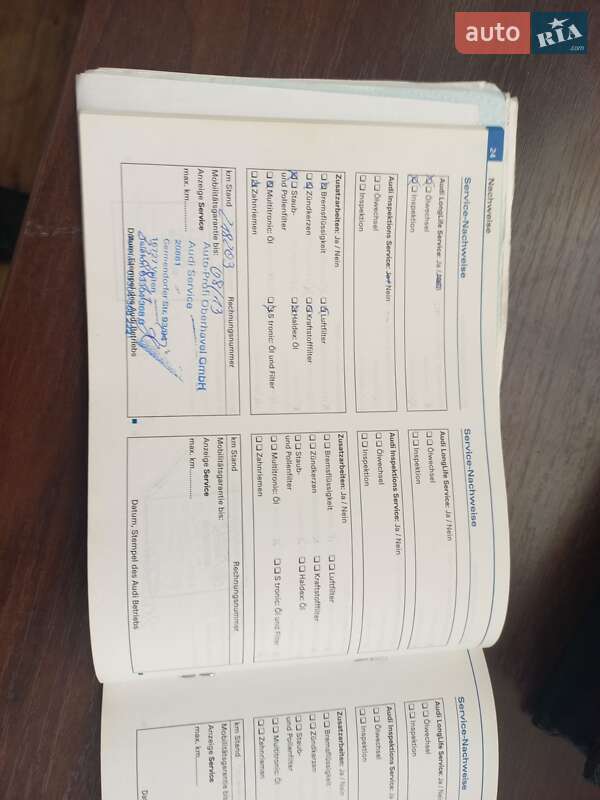 auto RIA .com
24
Nachweise
Service-Nachweise
Audi LongLife Service: Ja / Nein
Ölwechsel
Inspektion
Audi Inspektions Service: Ja / Nein
Ölwechsel
Inspektion
Zusatzarbeiten: Ja / Nein
Bremsflüssigkeit
Luftfilter
Zündkerzen
Kraftstofffilter
Staub-
und Pollenfilter
Haldex: Öl
Multitronic: Öl
S tronic: Öl und Filter
Zahnriemen
km Stand
Rechnungsnummer
Mobilitätsgarantie bis: 08/13
Anzeige Service
max. km
Auto-Profi Oberhavel GmbH
Audi Service
20081
Germendorfer Str. 03/04
16727 Velten
Datum, Stempel des Audi Betriebs
Service-Nachweise
Audi LongLife Service: Ja / Nein
Ölwechsel
Inspektion
Audi Inspektions Service: Ja / Nein
Ölwechsel
Inspektion
Zusatzarbeiten: Ja / Nein
Bremsflüssigkeit
Luftfilter
Zündkerzen
Kraftstofffilter
Staub-
und Pollenfilter
Haldex: Öl
Multitronic: Öl
S tronic: Öl und Filter
Zahnriemen
km Stand
Rechnungsnummer
Mobilitätsgarantie bis:
Anzeige Service
max. km
Datum, Stempel des Audi Betriebs
Service-Nachweise
Audi LongLife Service: Ja / Nein
Ölwechsel
Inspektion
Audi Inspektions Service: Ja
Ölwechsel
Inspektion
Zusatzarbeiten: Ja / Nein
Bremsflüssigkeit
Zündkerzen
Staub-
und Pollenfilter
Multitronic: Öl
Zahnriemen
km Stand
Mobilitätsgarantie bis:
Anzeige Service
max. km